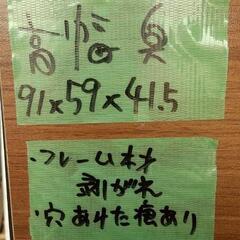 高 幅 奥
91×59×41.5
・フレーム木材
剥がれ
・穴あけた痕あり